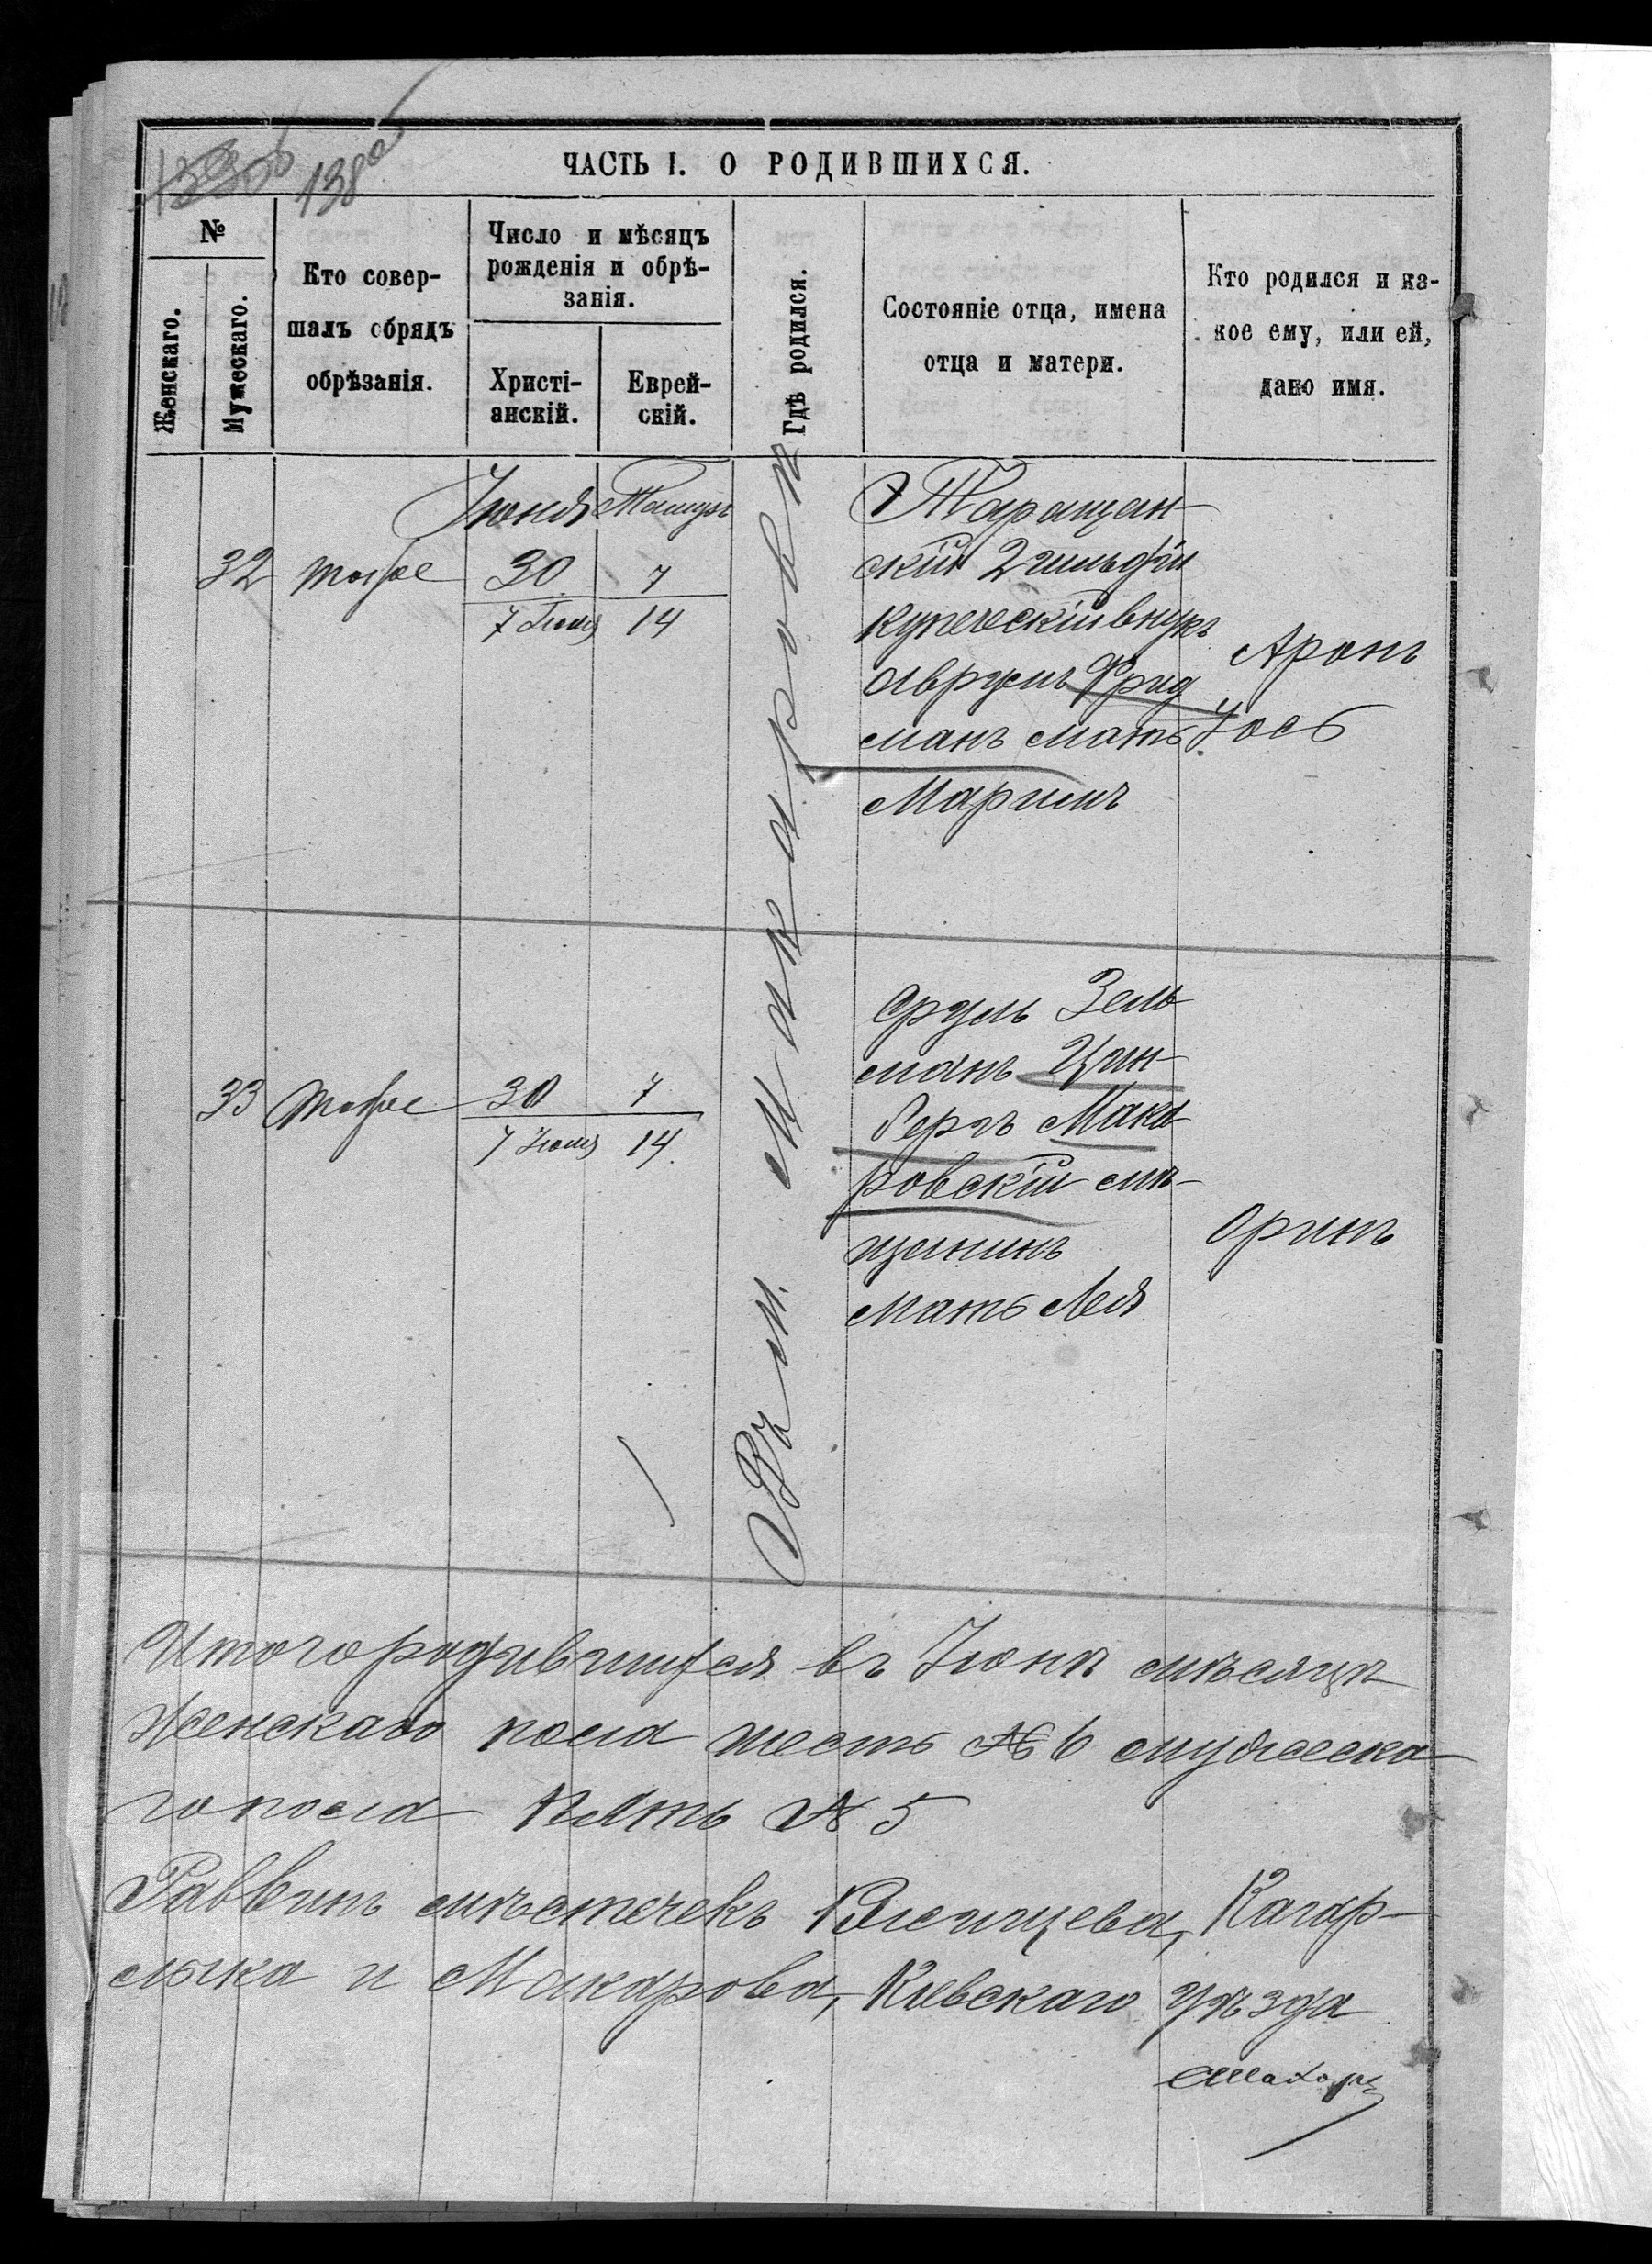 138об
ЧАСТЬ I. О РОДИВШИХСЯ.
№
Женскаго.
Мужескаго.
Кто совер-
шалъ обрядъ
обрѣзанія.
Число и мѣсяцъ
рожденія и обрѣ-
занія.
Христі-
анскій.
Еврей-
скій.
Гдѣ родился.
Состояніе отца, имена
отца и матери.
Кто родился и ка-
кое ему, или ей,
дано имя.
Въ м. Макаровѣ
Іюня Тамуз
32 тоже 30 7
7 Іюля 14
Таращан-
скій 2 гильдіи
купеческій внукъ
Аврумъ Фрид
манъ мать
Маримъ
Аронъ
Іось
33 тоже 30 7
7 Іюля 14
Сруль Зель
манъ Цин-
бергъ Мака
ровскій мѣ-
щанинъ
мать Лея
Итого родившихся въ Іюнѣ мѣсяцѣ
Женскаго пола шесть № 6 мужеска
го пола пять № 5
Раввинъ мѣстечекъ Ржищева, Кагар-
лыка и Макарова, Кіевскаго уѣзда